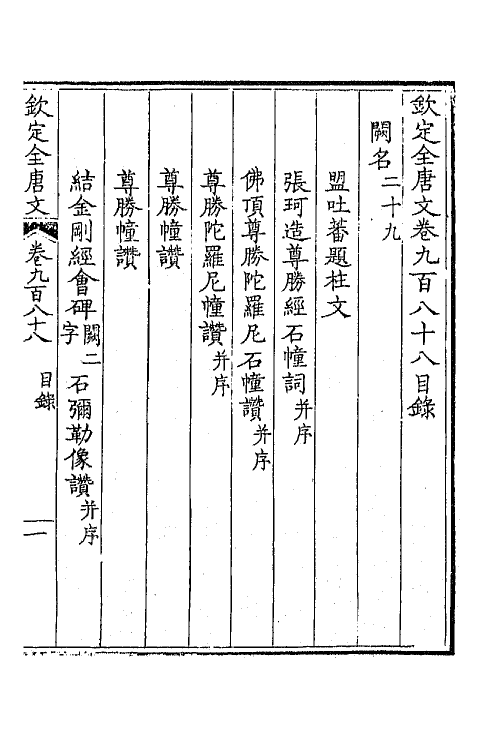 欽定全唐文卷九百八十八目錄
闕名二十九
盟吐蕃題柱文
張珂造尊勝經石幢詞并序
佛頂尊勝陀羅尼石幢讚并序
尊勝陀羅尼幢讚并序
尊勝幢讚
尊勝幢讚
結金剛經會碑闕二字石彌勒像讚并序
欽定全唐文 卷九百八十八 目錄 一